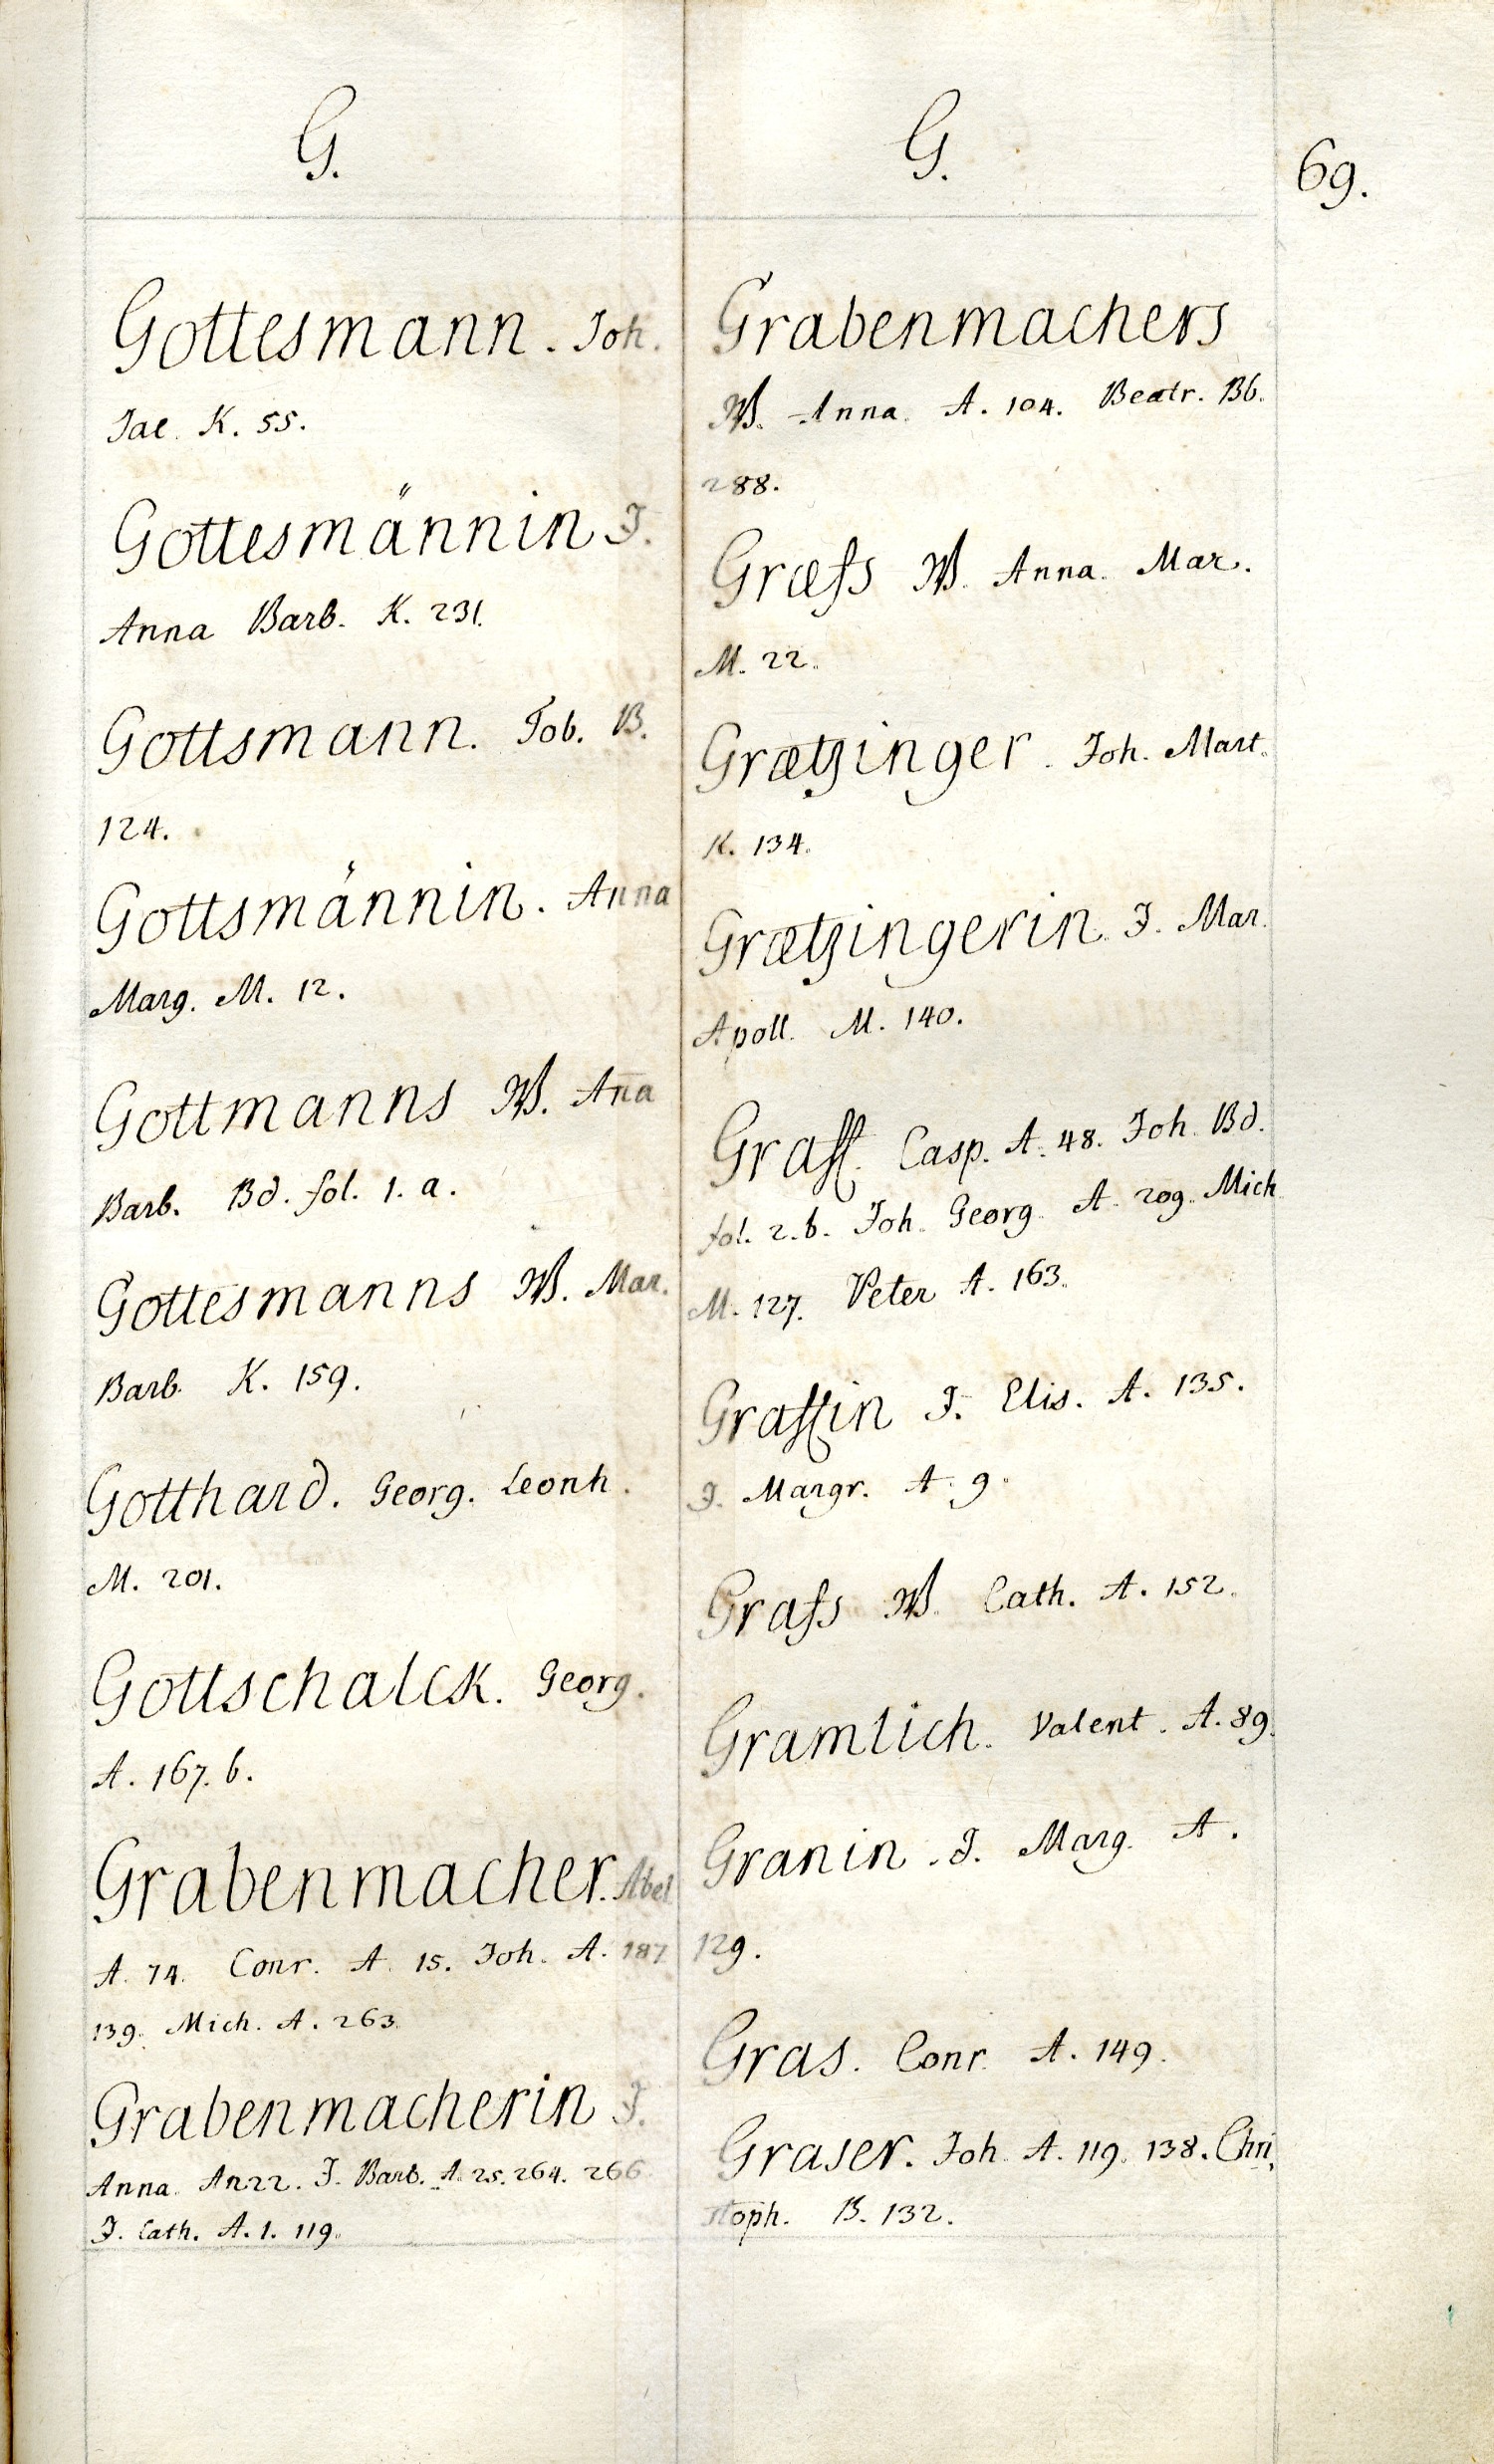 G.
Gottesmann. Joh.
Jac. K. 55.
Gottesmännin J.
Anna Barb. K. 231.
Gottsmann. Tob. B.
124.
Gottsmännin. Anna
Marg. M. 12.
Gottmanns W. Aña
Barb. Bd. fol. 1. a.
Gottesmanns W. Mar.
Barb. K. 159.
Gotthard. Georg. Leonh.
M. 201.
Gottschalck. Georg.
A. 167. b.
Grabenmacher. Abel
A. 74. Conr. A. 15. Joh. A. 187
139. Mich. A. 263.
Grabenmacherin J.
Anna. An22. J. Barb. A. 25. 264. 266
J. Cath. A. 1. 119.
G.
69.
Grabenmachers
W. Anna. A. 104. Beatr. Bb.
288.
Græfs W. Anna. Mar.
M. 22.
Grætzinger. Joh. Mart.
K. 134.
Grætzingerin. J. Mar.
Apoll. M. 140.
Graff. Casp. A. 48. Joh. Bd.
fol. 2. b. Joh. Georg. A. 209. Mich
M. 127. Peter A. 163.
Graffin J. Elis. A. 135.
J. Margr. A. 9.
Grafs W. Cath. A. 152.
Gramlich. Valent. A. 89.
Granin. J. Marg. A.
129.
Gras. Conr. A. 149.
Graser. Joh. A. 119. 138. Chri
stoph. B. 132.